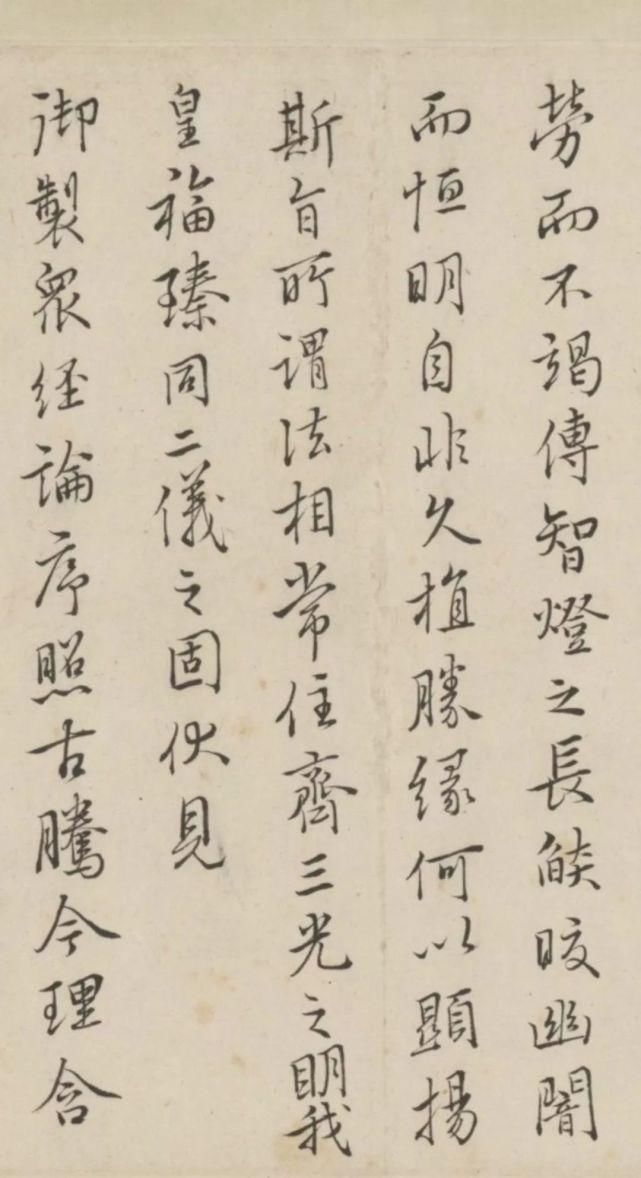 勞而不竭傳智燈之長𦦨皎幽闇
而恒明自非久植勝緣何以顯揚
斯旨所謂法相常住齊三光之明我
皇福臻同二儀之固伏見
御製眾經論序照古騰今理含